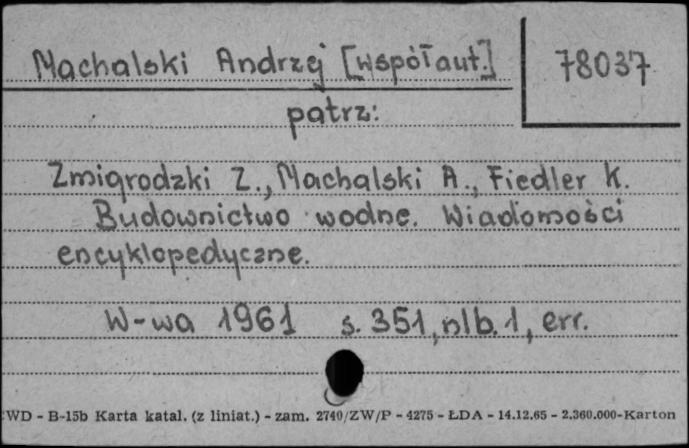 Machalski Andrzej [współaut.] 78037
patrz:
Zmigrodzki Z., Machalski A., Fiedler K.
Budownictwo wodne. Wiadomości
encyklopedyczne.
W-wa 1961 s. 351, nlb. 1, err.
WD - B-15b Karta katal. (z liniat.) - zam. 2740/ZW/P - 4275 - ŁDA - 14.12.65 - 2.360.000-Karton